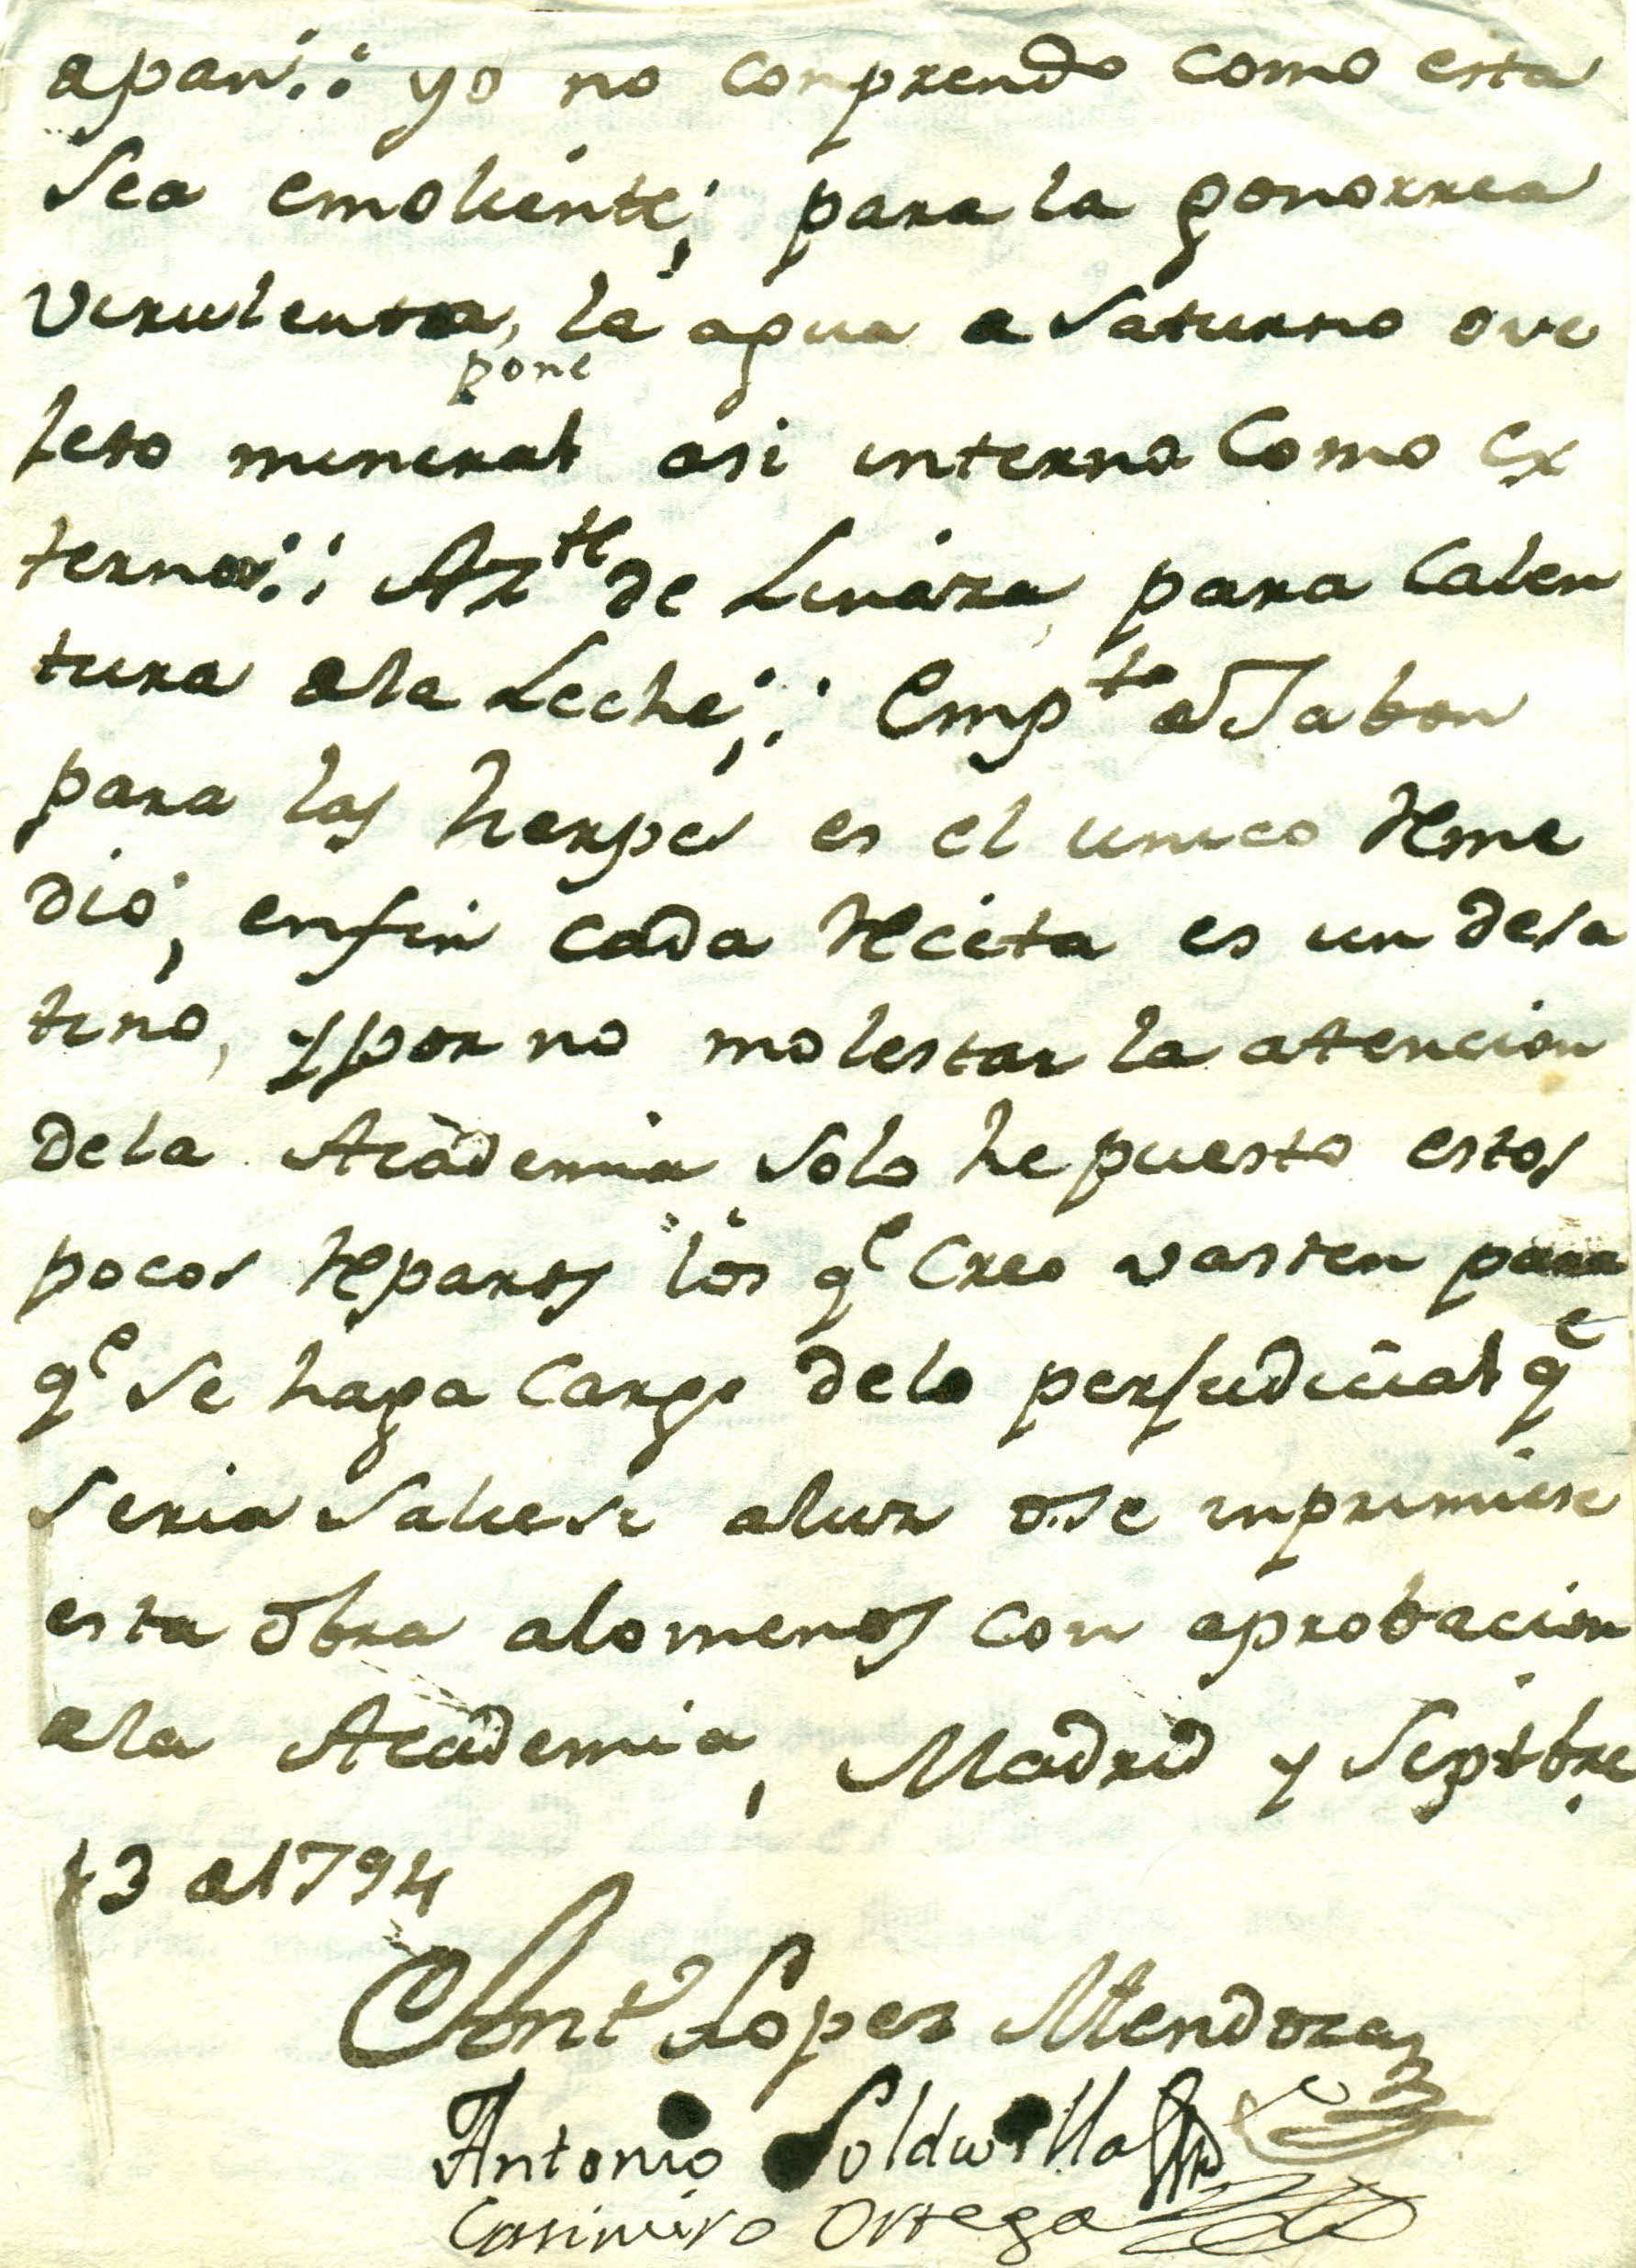 apari.: yo no conprendo como esta
sea emoliente; para la gonorrea
virulenta, la agua a saturno ove
pone
leto mineral asi interno como ex
terno.: Azte de Linaza para Calen
tura ala Leche; : Empto a Jabon
para las herpes es el unico Reme
dio, enfin cada Receta es un desa
tino, y por no molestar la atencion
dela Academia solo he puesto estos
pocos Reparos los qe creo vasten para
qe se haga cargo delo perjudicial qe
seria saliese aluz ose inprimiese
esta obra alomenos con aprobacion
ala Academia, Madrid y Septbre
13 a 1794
Antº Lopez Mendoza
Antonio Soldevilla
Casimiro Ortega